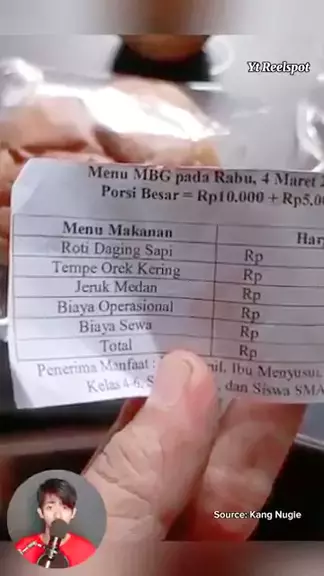 Yt Reelspot
Menu MBG pada Rabu, 4 Maret
Porsi Besar = Rp10.000 + Rp5.0
Menu Makanan Har
Roti Daging Sapi Rp
Tempe Orek Kering Rp
Jeruk Medan Rp
Biaya Operasional Rp
Biaya Sewa Rp
Total Rp
Penerima Manfaat : Ibu Menyusui,
Kelas 4-6, dan Siswa SMA
Source: Kang Nugie